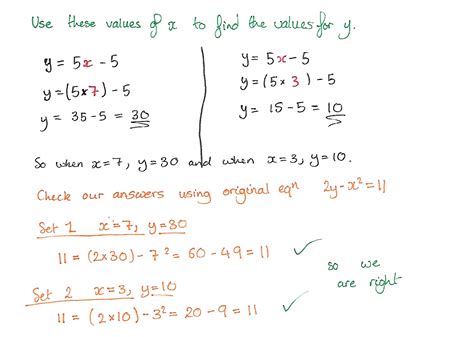 Use these values of x to find the values for y.
y = 5x - 5
y = (5×7) - 5
y = 35 - 5 = 30
y = 5x - 5
y = (5×3) - 5
y = 15 - 5 = 10
So when x=7, y=30 and when x=3, y=10.
Check our answers using original eqn 2y-x²=11
Set 1 x=7, y=30
11 = (2×30) - 7² = 60 - 49 = 11 ✓
Set 2 x=3, y=10
11 = (2×10) - 3² = 20 - 9 = 11 ✓
so we
are right